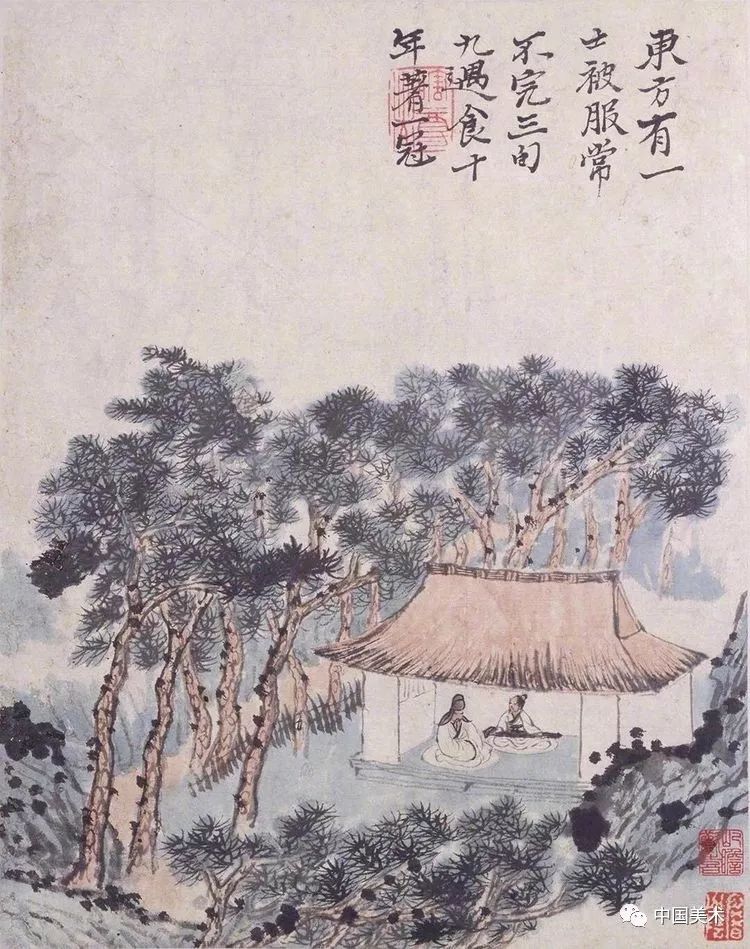 東方有一
士被服常
不完三旬
九遇食十
年著一冠
中国美术